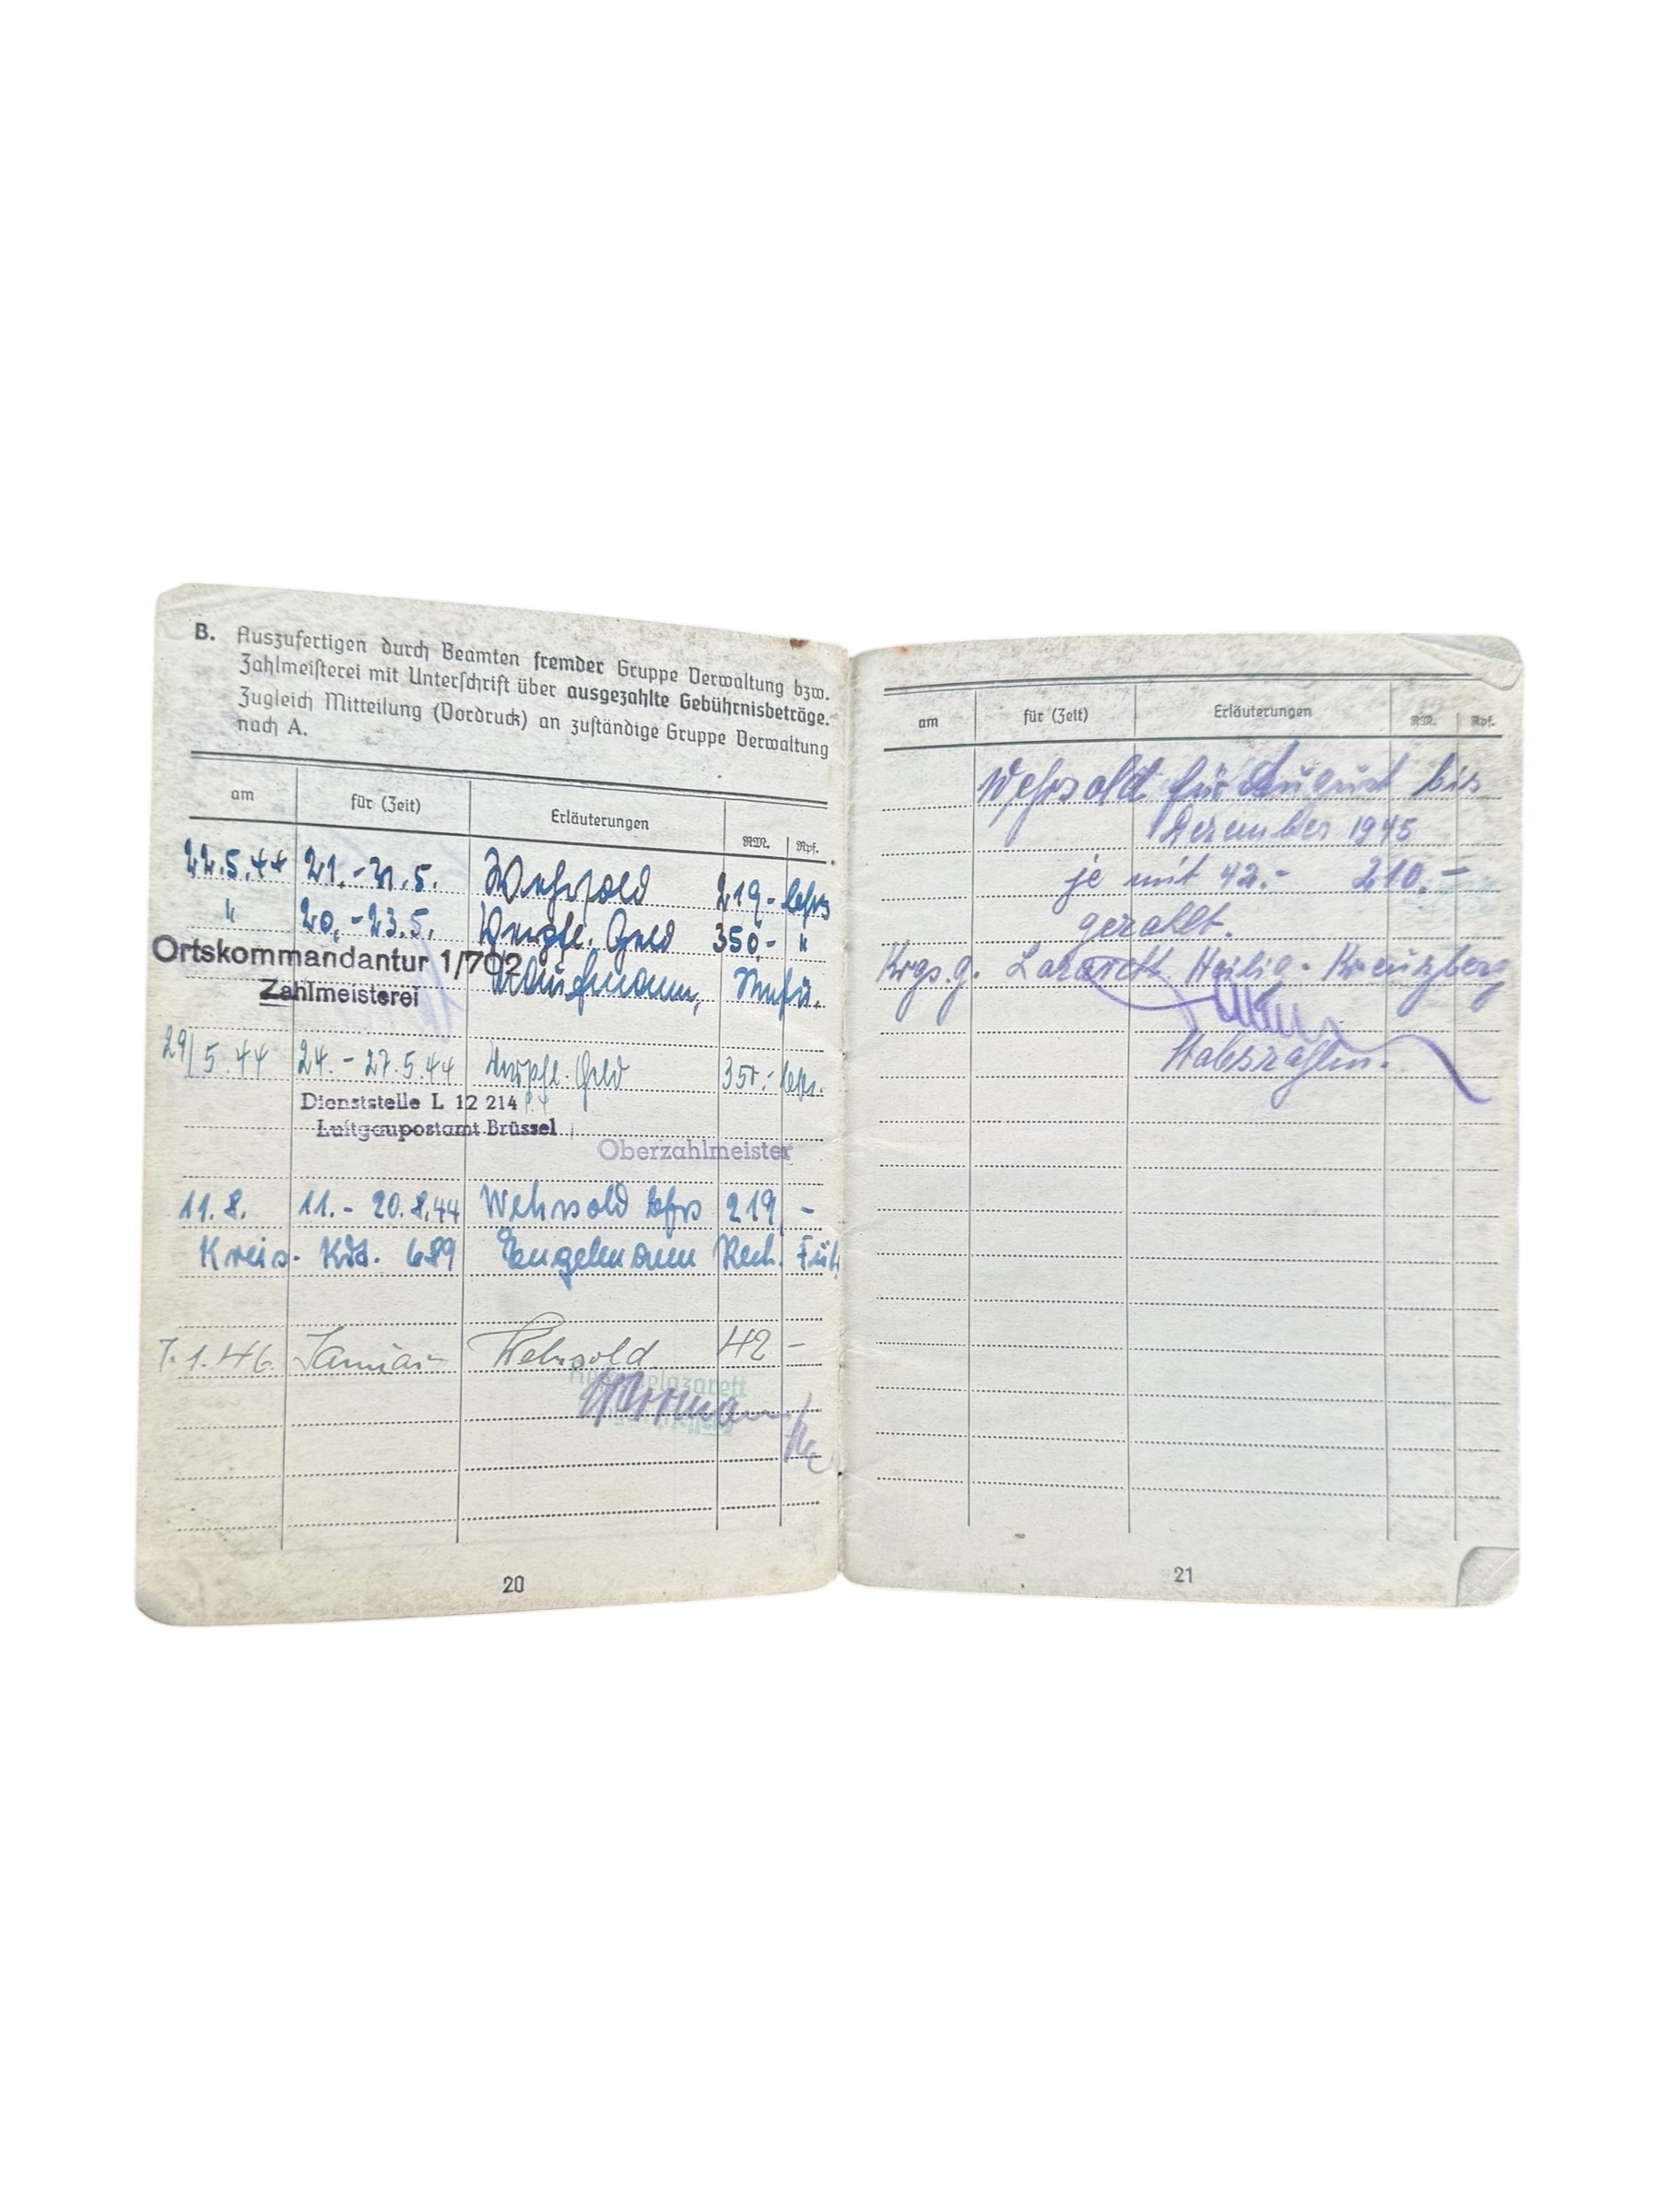 B. Auszufertigen durch Beamten fremder Gruppe Verwaltung bzw.
Zahlmeisterei mit Unterschrift über ausgezahlte Gebührnisbeträge.
Zugleich Mitteilung (Vordruck) an zuständige Gruppe Verwaltung
nach A.
am für (Zeit) Erläuterungen RM. Rpf.
22.5.44 21.-31.5. Wehrsold 219.- bfrs
" 20.-23.5. Verpfl. Geld 350,- "
Ortskommandantur 1/702
Kaufmann,
Zahlmeisterei
29/5.44 24.-27.5.44 Verpfl. Geld 350.- bfrs.
Dienststelle L 12 214
Luftgaupostamt Brüssel
Oberzahlmeister
11.8. 11.- 20.8.44 Wehrsold bfrs 219 -
Kreis- Kdt. 689 Engelmann Rech. Füh.
7.1.46. Januar Wehrsold 42 -
20
am für (Zeit) Erläuterungen RM. Rpf.
Wehrsold für August bis
Dezember 1945
je mit 42.- 210.-
gezahlt.
Krgs.g. Lazarett Heilig-Kreuzberg
Stabszahlm.
21